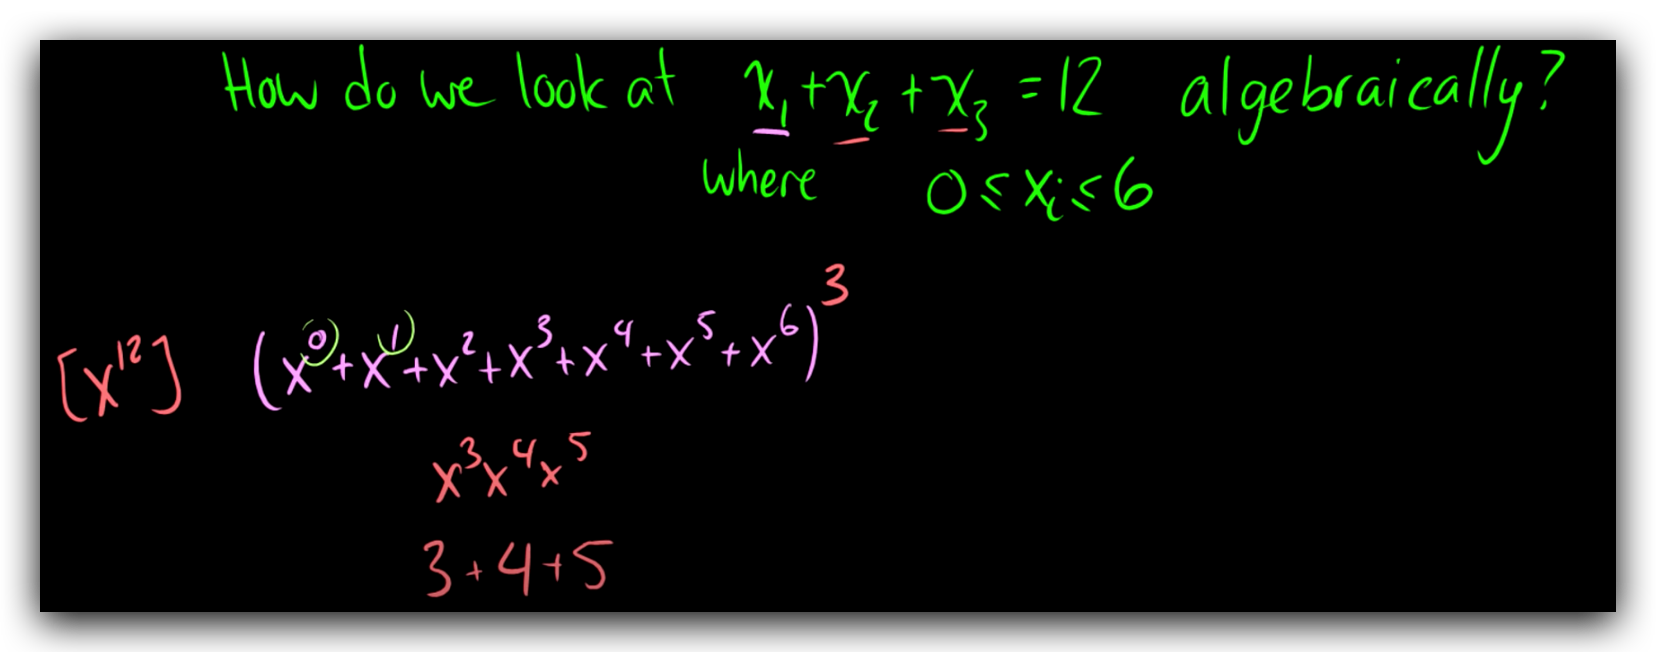 How do we look at x₁+x₂+x₃=12 algebraically?
where 0≤xᵢ≤6
[x¹²] (x⁰+x¹+x²+x³+x⁴+x⁵+x⁶)³
x³x⁴x⁵
3+4+5